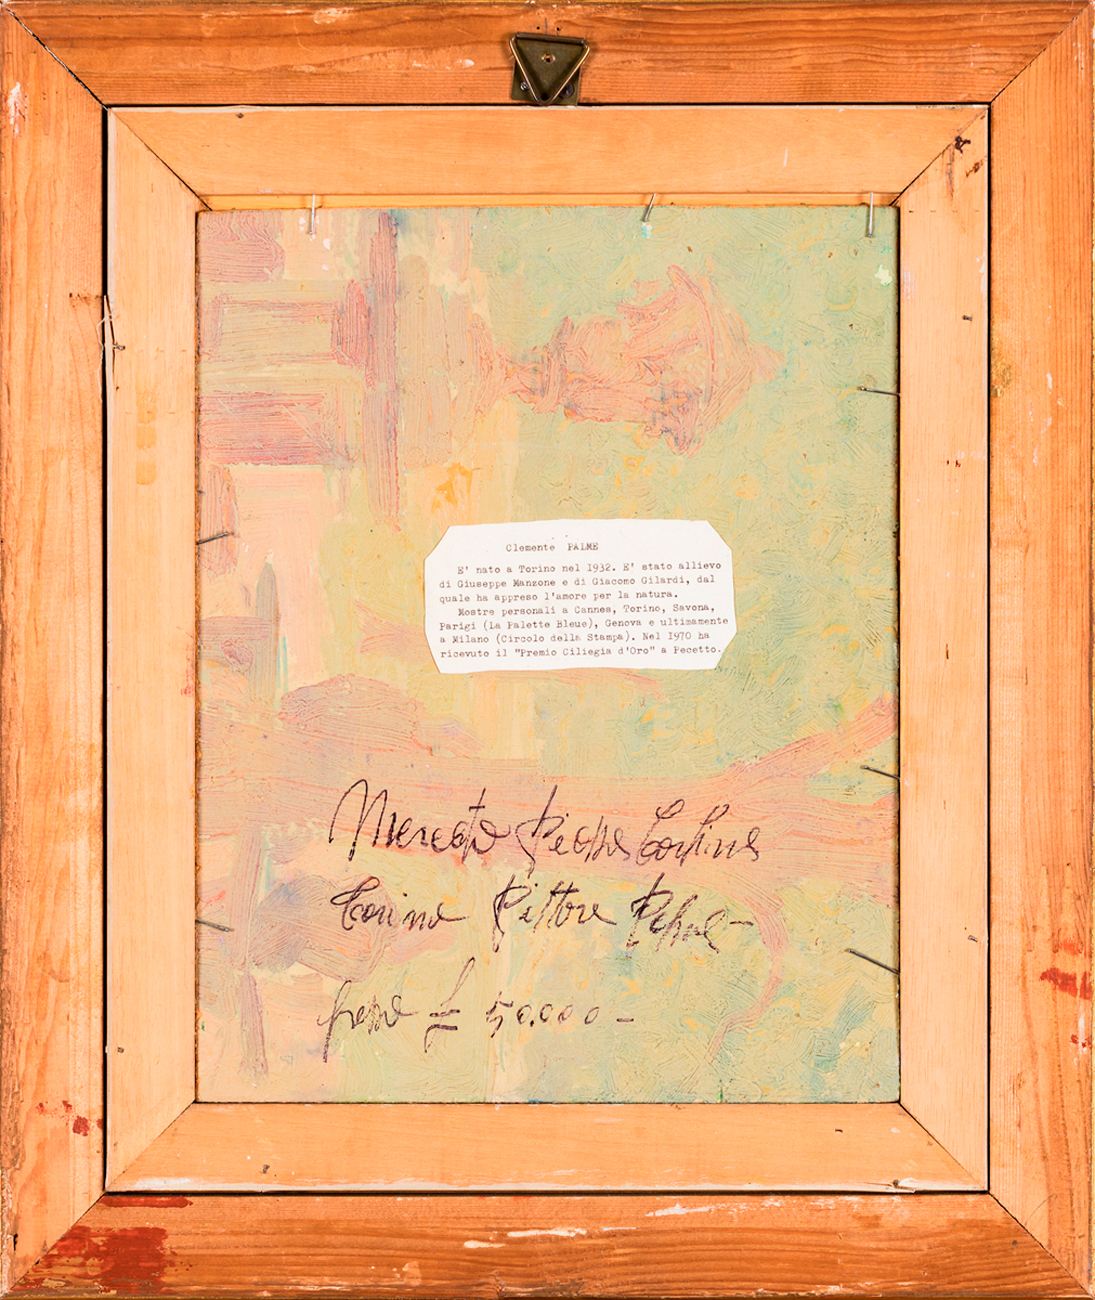 Clemente PALME
E' nato a Torino nel I932. E' stato allievo
di Giuseppe Manzone e di Giacomo Gilardi, dal
quale ha appreso l'amore per la natura.
Mostre personali a Cannes, Torino, Savona,
Parigi (La Palette Bleue), Genova e ultimamente
a Milano (Circolo della Stampa). Nel I970 ha
ricevuto il "Premio Ciliegia d'Oro" a Pecetto.
Mercato
Torino Pittore Palme -
£ 50.000 -